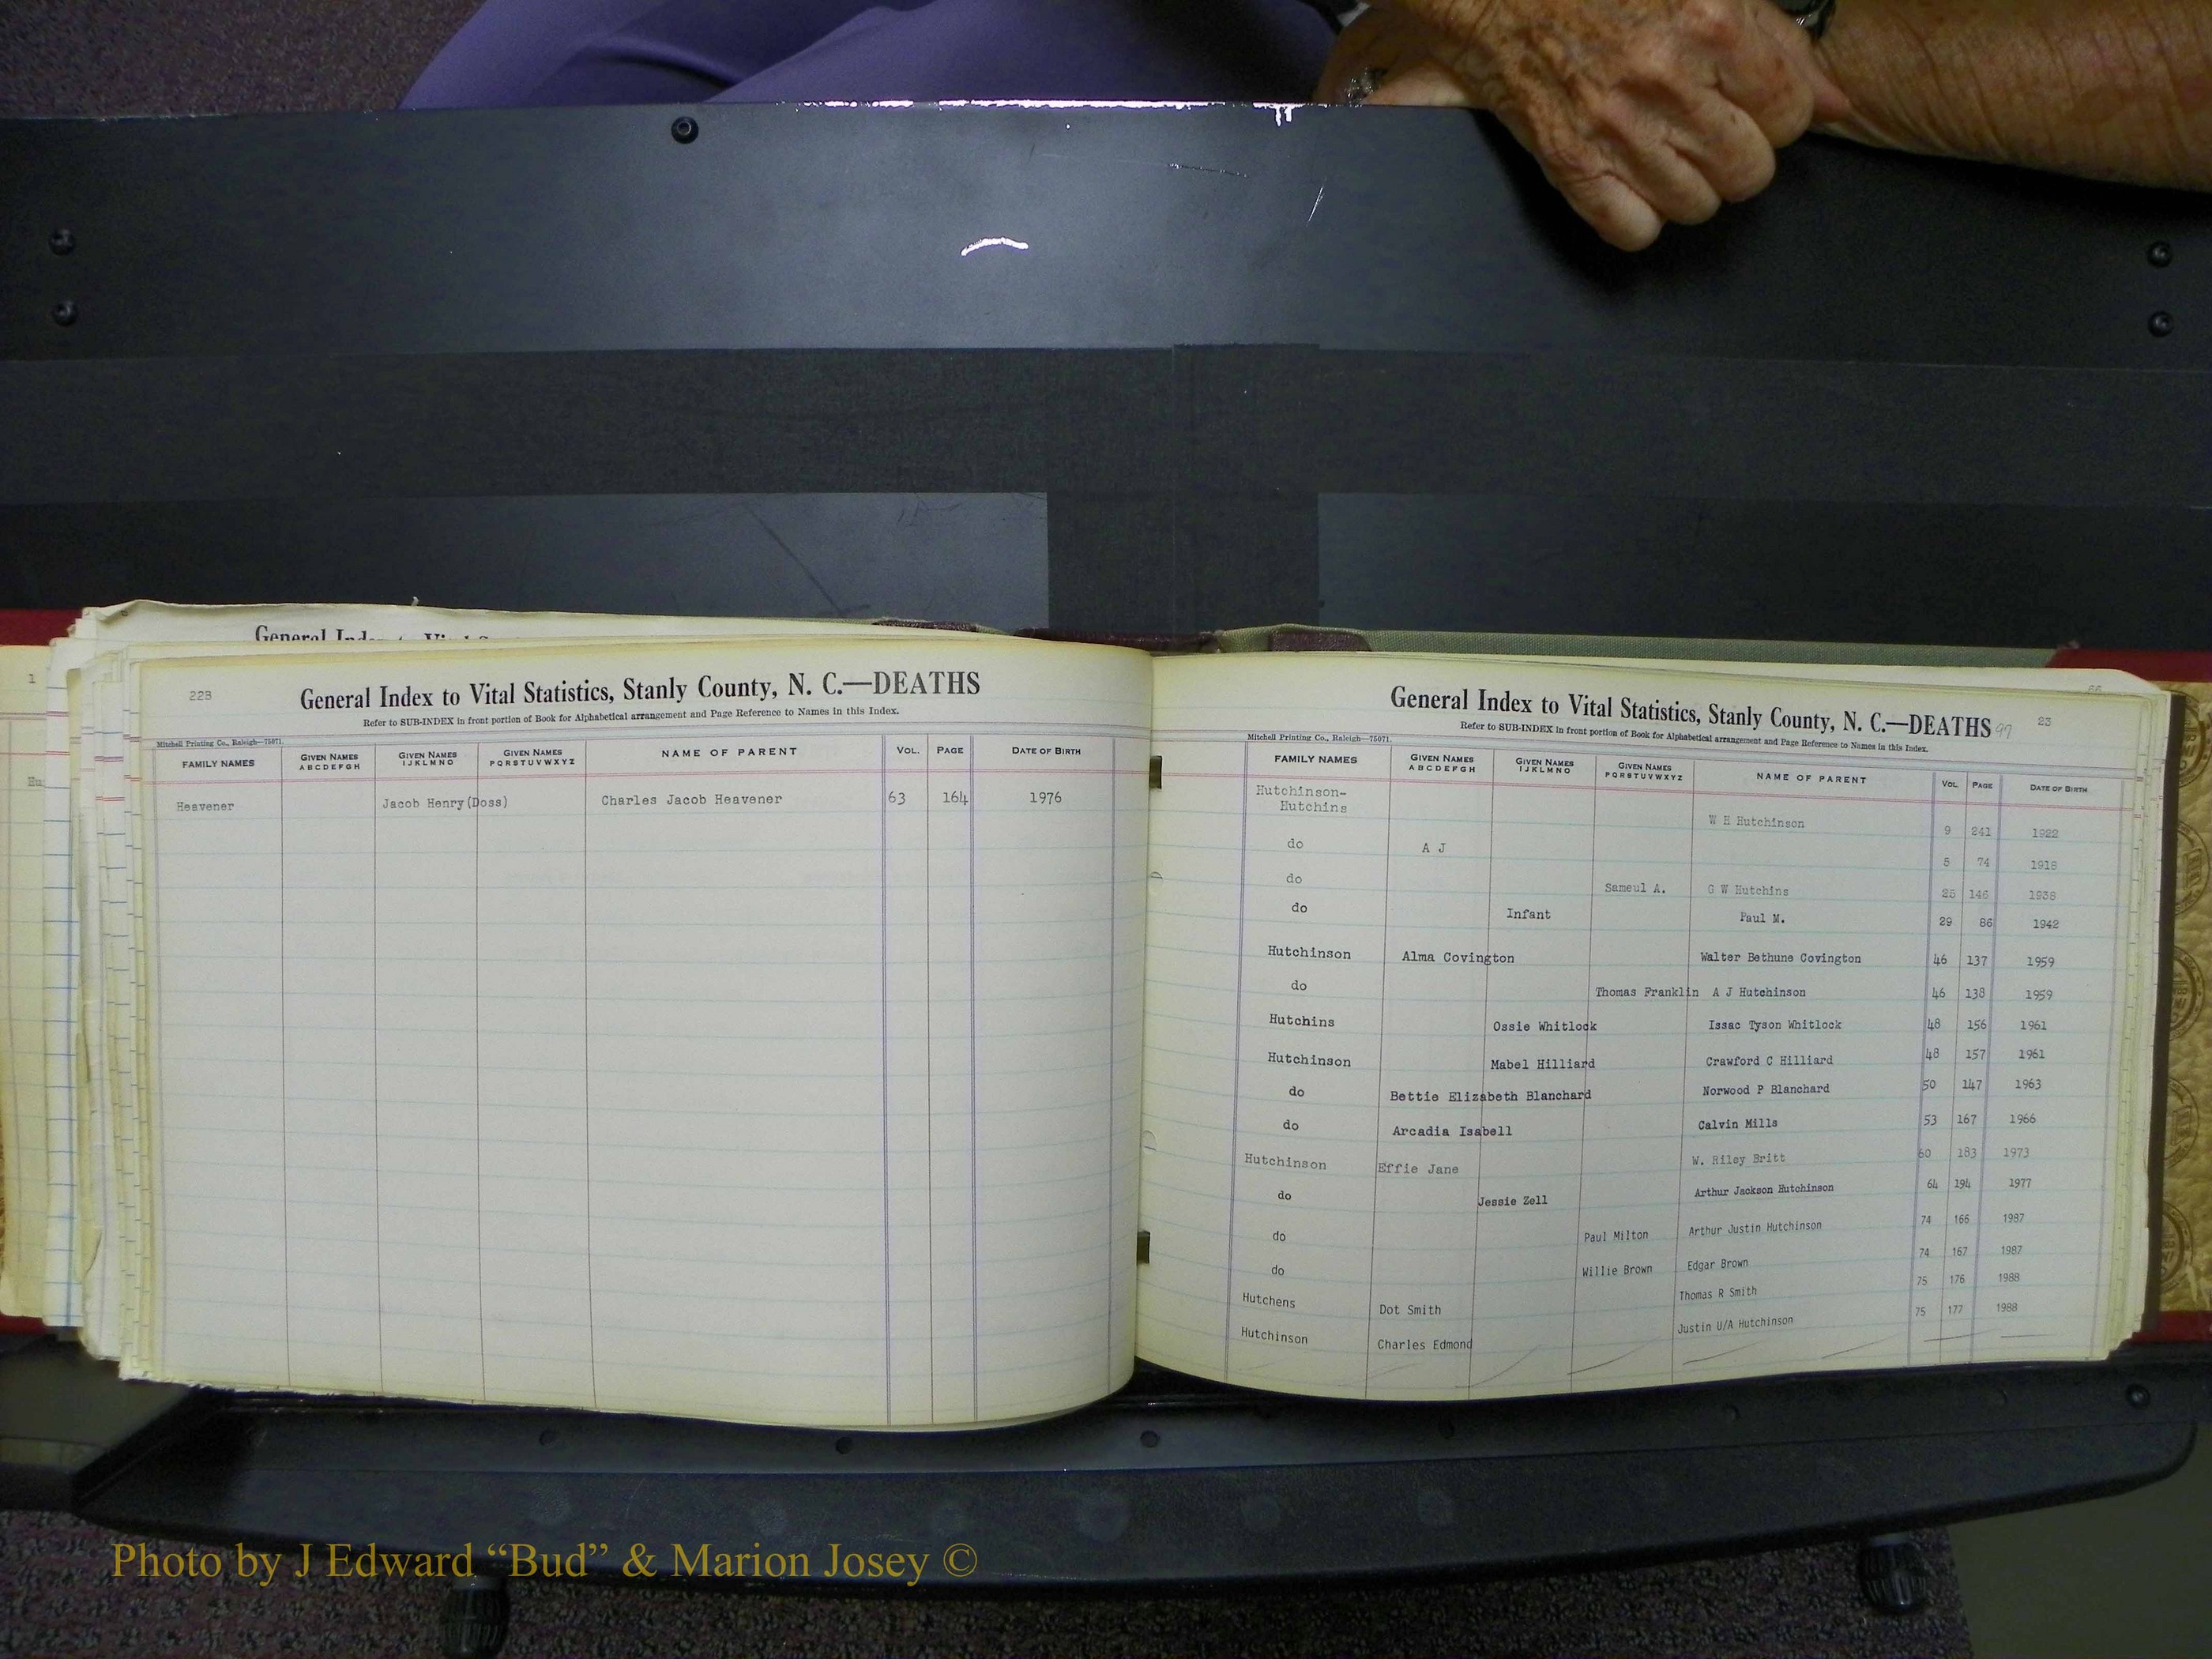 General Index to Vital S
1
Hu
22B
General Index to Vital Statistics, Stanly County, N. C.—DEATHS
Refer to SUB-INDEX in front portion of Book for Alphabetical arrangement and Page Reference to Names in this Index.
Mitchell Printing Co., Raleigh—75071.
FAMILY NAMES GIVEN NAMES ABCDEFGH GIVEN NAMES IJKLMNO GIVEN NAMES PQRSTUVWXYZ NAME OF PARENT VOL. PAGE DATE OF BIRTH
Heavener Jacob Henry(Doss) Charles Jacob Heavener 63 164 1976
General Index to Vital Statistics, Stanly County, N. C.—DEATHS 97 23
Refer to SUB-INDEX in front portion of Book for Alphabetical arrangement and Page Reference to Names in this Index.
Mitchell Printing Co., Raleigh—75071.
FAMILY NAMES GIVEN NAMES ABCDEFGH GIVEN NAMES IJKLMNO GIVEN NAMES PQRSTUVWXYZ NAME OF PARENT VOL. PAGE DATE OF BIRTH
Hutchinson-
Hutchins W H Hutchinson 9 241 1922
do A J 5 74 1918
do Sameul A. G W Hutchins 25 146 1938
do Infant Paul M. 29 86 1942
Hutchinson Alma Covington Walter Bethune Covington 46 137 1959
do Thomas Franklin A J Hutchinson 46 138 1959
Hutchins Ossie Whitlock Issac Tyson Whitlock 48 156 1961
Hutchinson Mabel Hilliard Crawford C Hilliard 48 157 1961
do Bettie Elizabeth Blanchard Norwood P Blanchard 50 147 1963
do Arcadia Isabell Calvin Mills 53 167 1966
Hutchinson Effie Jane W. Riley Britt 60 183 1973
do Jessie Zell Arthur Jackson Hutchinson 64 194 1977
do Paul Milton Arthur Justin Hutchinson 74 166 1987
do Willie Brown Edgar Brown 74 167 1987
Hutchens Dot Smith Thomas R Smith 75 176 1988
Hutchinson Charles Edmond Justin U/A Hutchinson 75 177 1988
Photo by J Edward “Bud” & Marion Josey ©